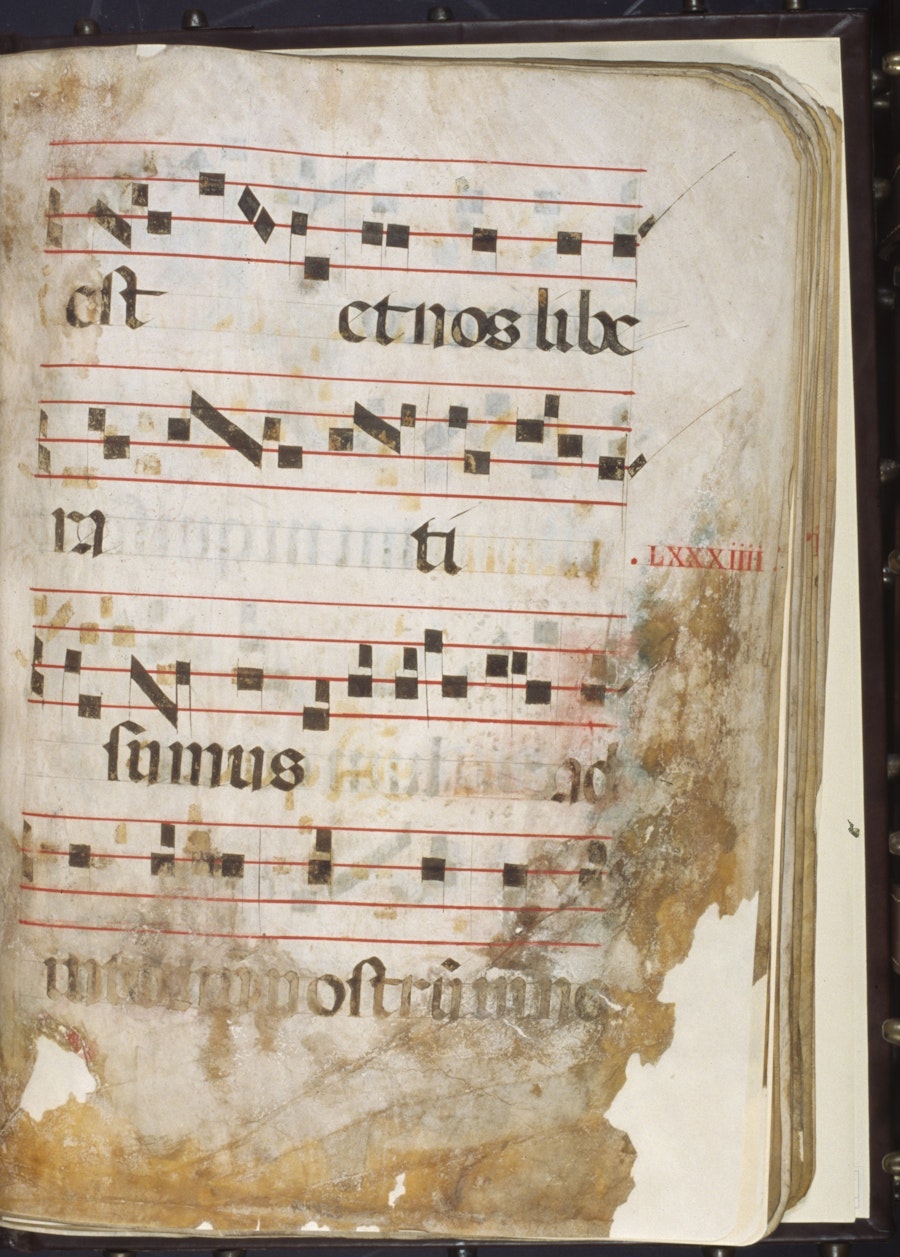 est et nos libe
ra ti
. LXXXiiii
sumus ad
iutorium nostrū in no